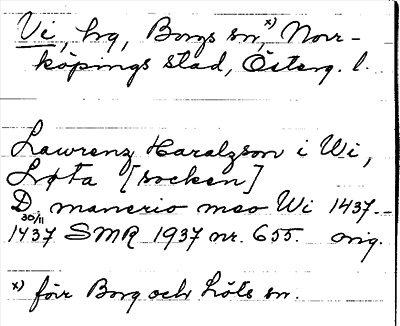 Vi, hg, Borgs sn,x) Norr-
köpings stad, Österg. l.
Lawrenz Haralzson i Wi,
Løta [socken]
D. manerio meo Wi 1437.-
30/11
1437 SMR 1937 nr. 655. orig.
x) förr Borg och Löts sn.